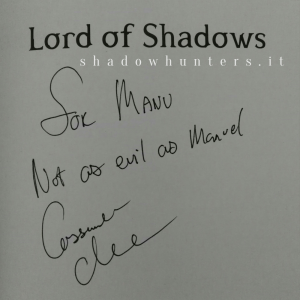 Lord of Shadows
shadowhunters.it
FOR MANU
Not as evil as Manuel
Cassandra
Clare